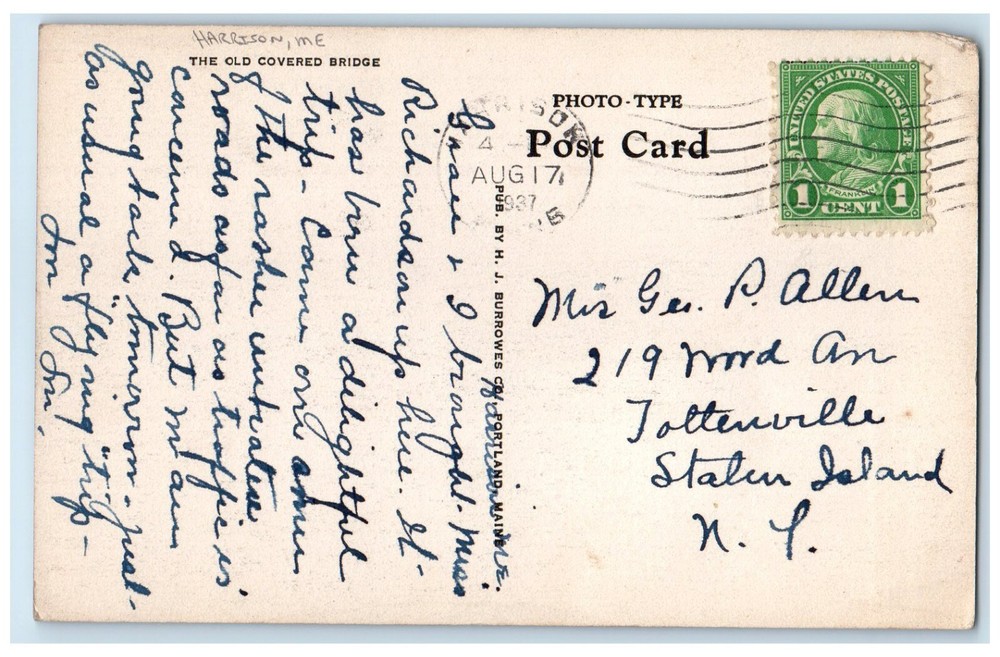 HARRISON, ME
THE OLD COVERED BRIDGE
PHOTO-TYPE
Post Card
AUG 17
1937
UNITED STATES POSTAGE
FRANKLIN
1 CENT 1
PUB. BY H. J. BURROWES CO., PORTLAND, MAINE
Me.
& I brought Miss
Richardson up here. It
has been a delightful
trip - Came over
of the rather
roads as far as traffic is
concerned. But
going back tomorrow - just
as usual a "flying" trip -
219 Wood Av
Tottenville
Staten Island
N. Y.
Geo. P. Allen